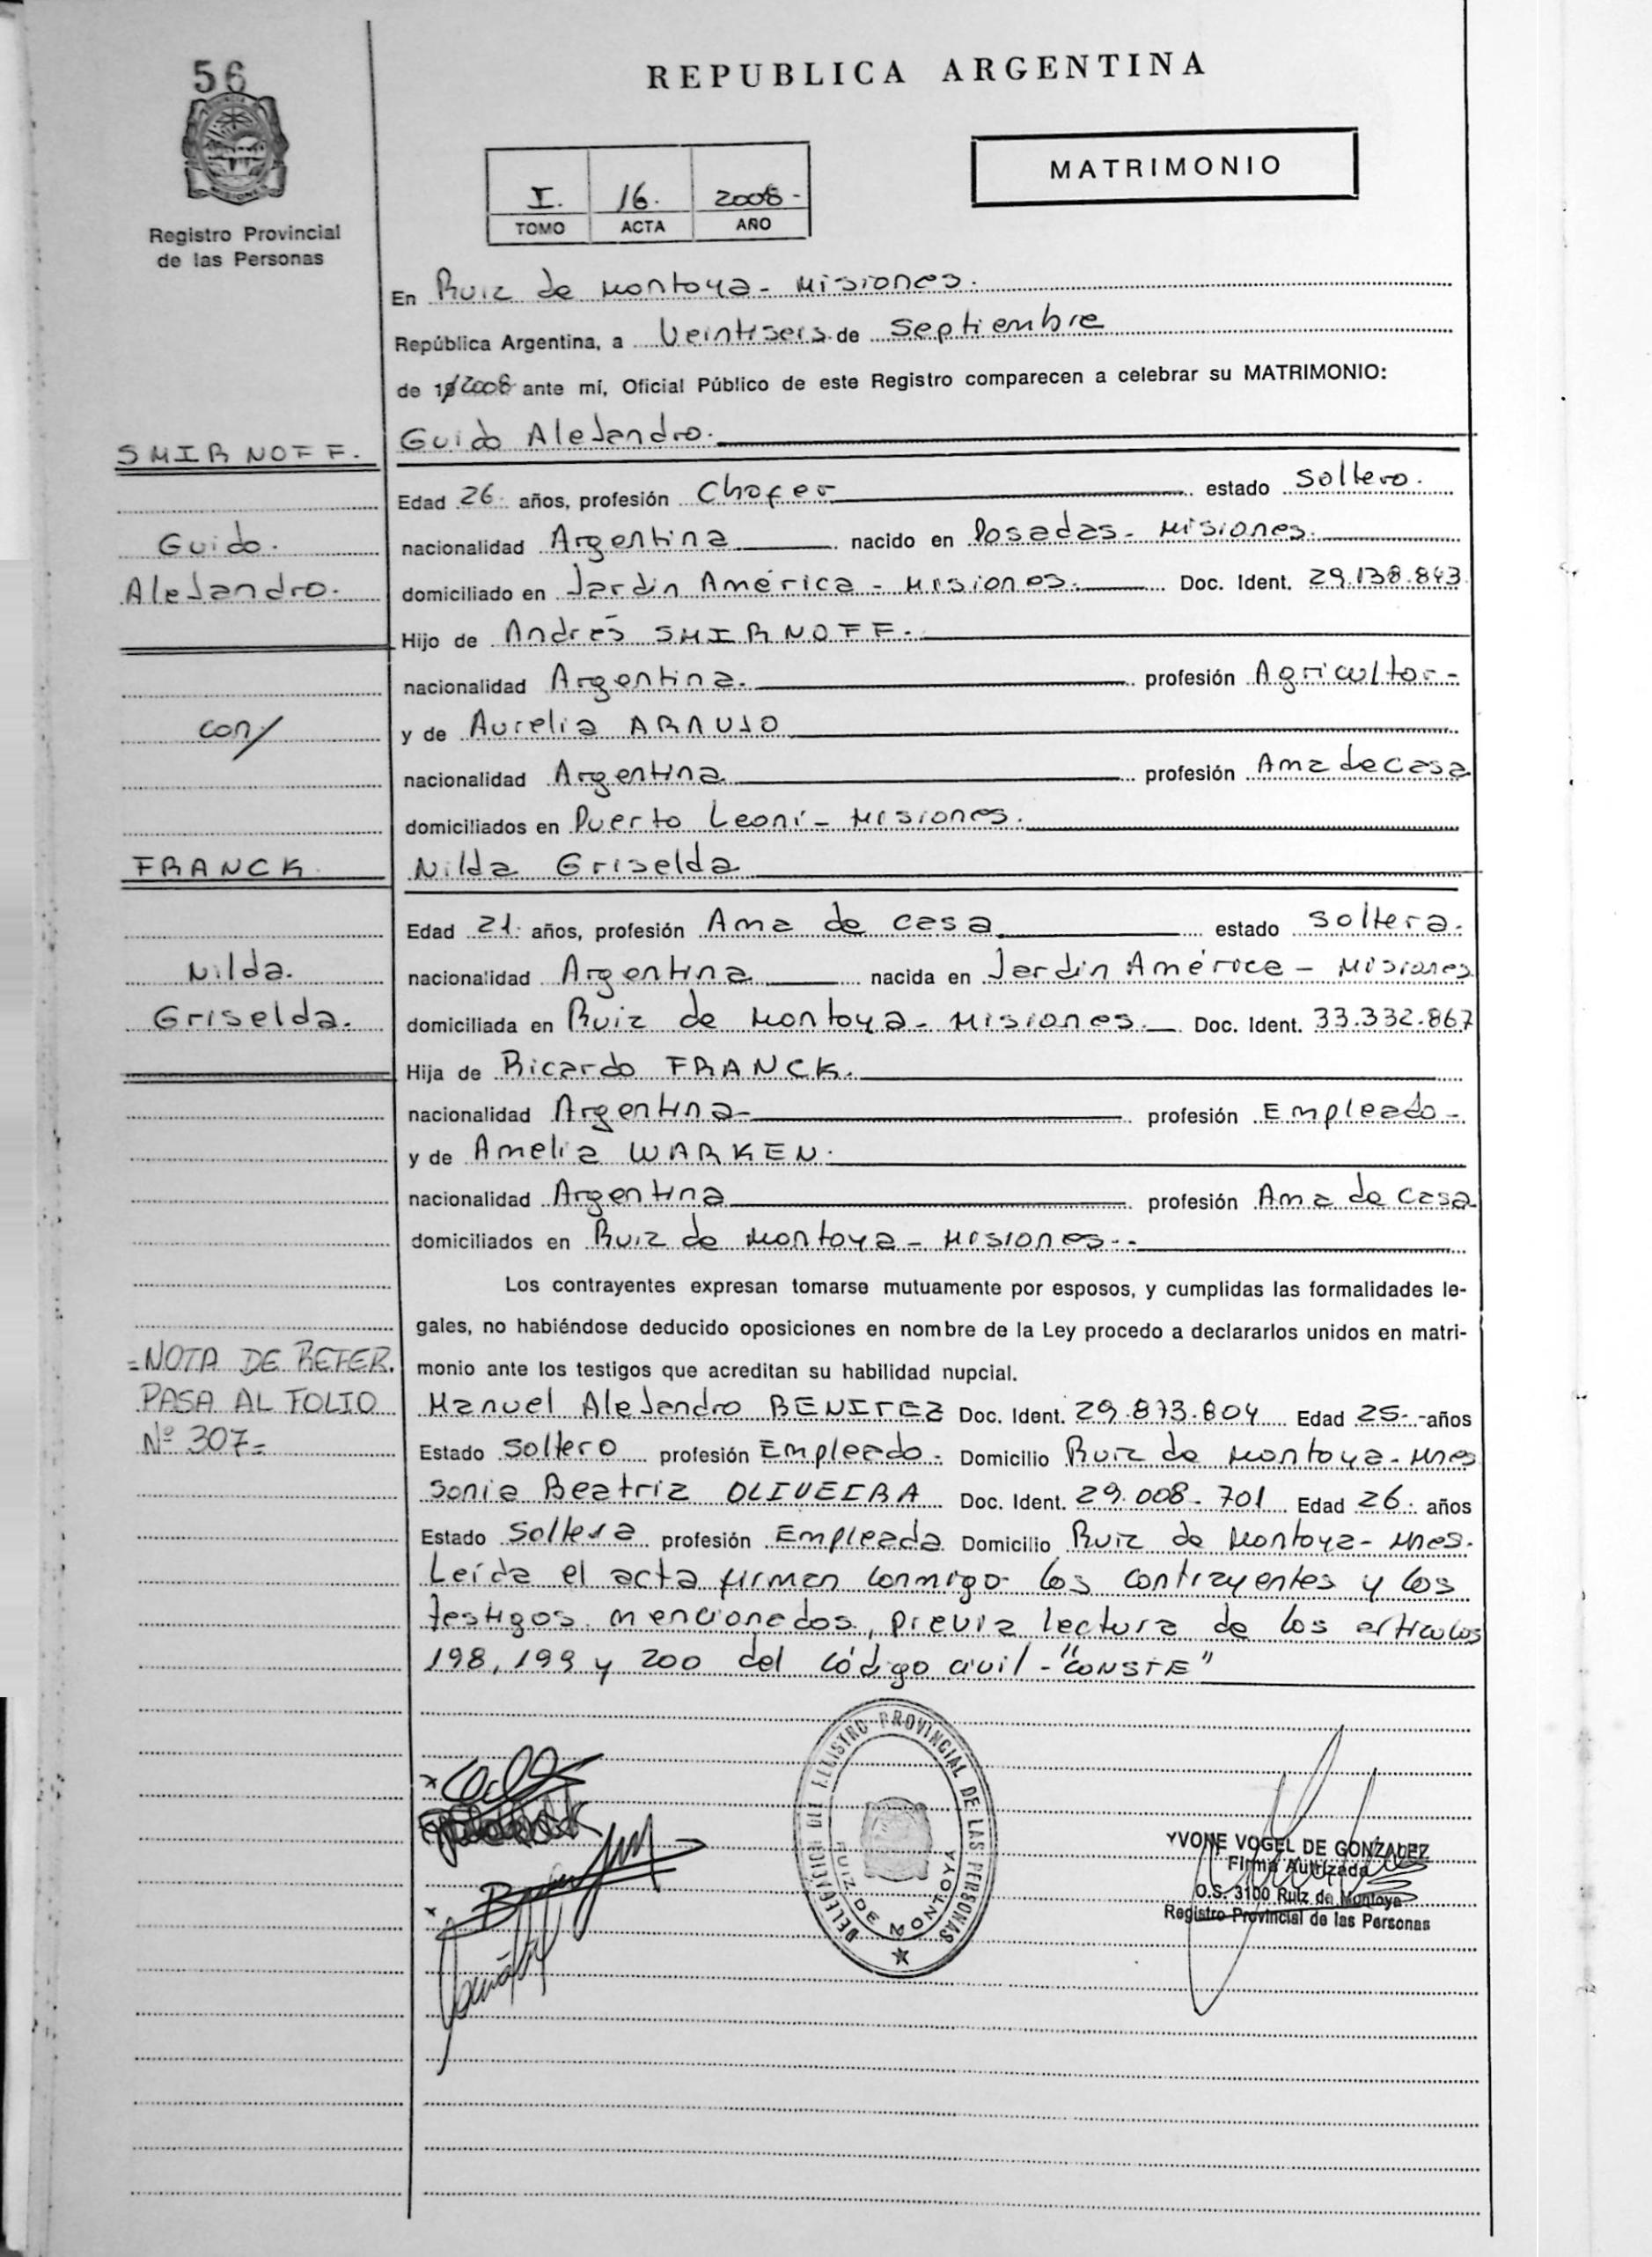 56
REPUBLICA ARGENTINA
MATRIMONIO
I. 16. 2008-
TOMO ACTA AÑO
Registro Provincial
de las Personas
En Ruiz de Montoya - Misiones.
República Argentina, a Veintiseis de Septiembre
de 19/2008 ante mí, Oficial Público de este Registro comparecen a celebrar su MATRIMONIO:
SMIRNOFF. Guido Alejandro.
Edad 26. años, profesión Chofer estado Soltero.
Guido. nacionalidad Argentina nacido en Posadas - Misiones.
Alejandro. domiciliado en Jardin América - Misiones. Doc. Ident. 29.138.843
Hijo de Andrés SMIRNOFF.
nacionalidad Argentina. profesión Agricultor-
con/ y de Aurelia ARAUJO
nacionalidad Argentina profesión Ama de casa
domiciliados en Puerto Leoni - Misiones.
FRANCK. Nilda Griselda
Edad 21. años, profesión Ama de casa estado Soltera.
Nilda. nacionalidad Argentina nacida en Jardin América - Misiones
Griselda. domiciliada en Ruiz de Montoya - Misiones. Doc. Ident. 33.332.867
Hija de Ricardo FRANCK.
nacionalidad Argentina- profesión Empleado-
y de Amelia WARKEN.
nacionalidad Argentina profesión Ama de casa
domiciliados en Ruiz de Montoya - Misiones.-
Los contrayentes expresan tomarse mutuamente por esposos, y cumplidas las formalidades le-
gales, no habiéndose deducido oposiciones en nombre de la Ley procedo a declararlos unidos en matri-
monio ante los testigos que acreditan su habilidad nupcial.
=NOTA DE REFER.
PASA AL FOLIO
Nº 307=
Manuel Alejandro BENITEZ Doc. Ident. 29.873.804 Edad 25- años
Estado Soltero profesión Empleado. Domicilio Ruiz de Montoya - Mnes
Sonia Beatriz OLIVEIRA Doc. Ident. 29.008.701 Edad 26. años
Estado Soltera profesión Empleada Domicilio Ruiz de Montoya - Mnes.
Leída el acta firman conmigo los contrayentes y los
testigos mencionados, previa lectura de los artículos
198, 199 y 200 del Código civil - "CONSTE"
DELEGACION DEL REGISTRO PROVINCIAL DE LAS PERSONAS
RUIZ DE MONTOYA
YVONE VOGEL DE GONZALEZ
Firma Autrizada
O.S. 3100 Ruiz de Montoya
Registro Provincial de las Personas